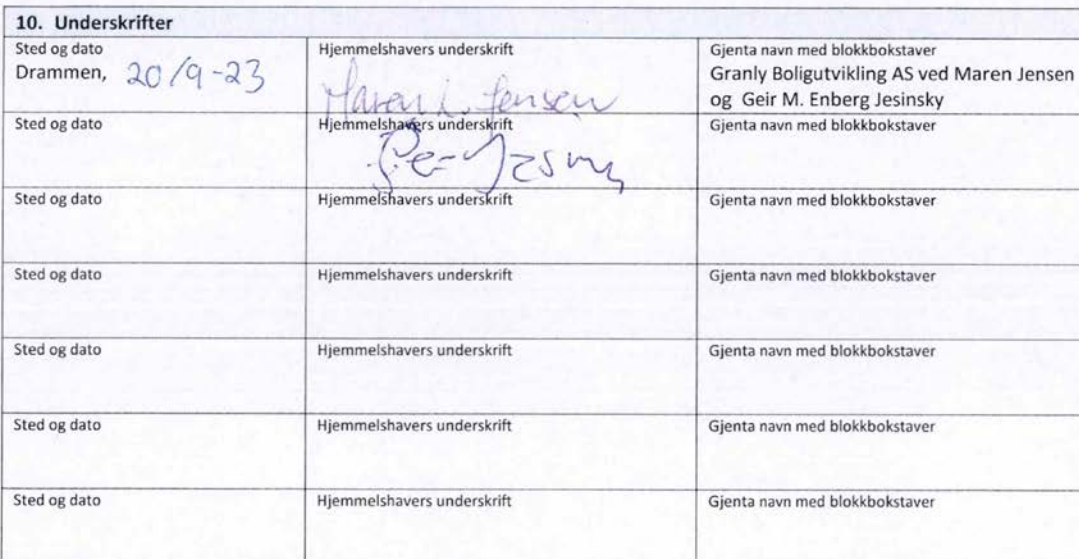 10. Underskrifter
Sted og dato
Drammen, 20/9-23
Hjemmelshavers underskrift
Maren L. Jensen
Gjenta navn med blokkbokstaver
Granly Boligutvikling AS ved Maren Jensen
og Geir M. Enberg Jesinsky
Sted og dato
Hjemmelshavers underskrift
Gjenta navn med blokkbokstaver
Sted og dato
Hjemmelshavers underskrift
Gjenta navn med blokkbokstaver
Sted og dato
Hjemmelshavers underskrift
Gjenta navn med blokkbokstaver
Sted og dato
Hjemmelshavers underskrift
Gjenta navn med blokkbokstaver
Sted og dato
Hjemmelshavers underskrift
Gjenta navn med blokkbokstaver
Sted og dato
Hjemmelshavers underskrift
Gjenta navn med blokkbokstaver